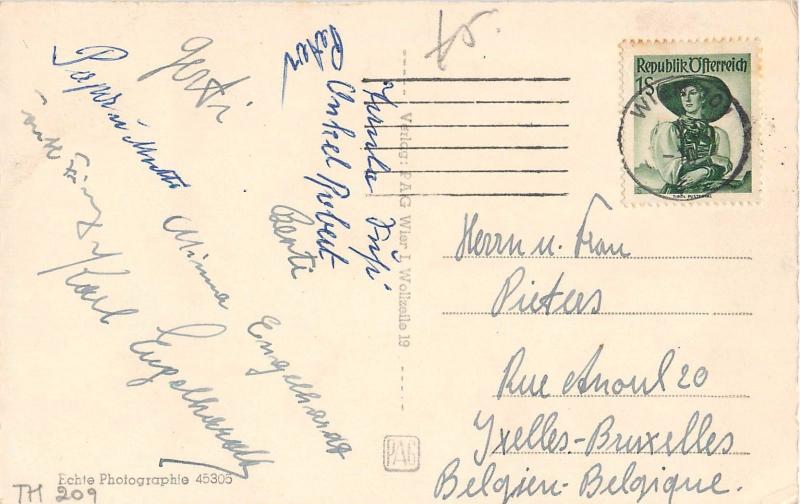 Gerti
Papa u Mutti
Minna
Engelhardt
Karl
Engelhardt
Peter
Onkel Robert
Berti
75.
Verlag: PAG Wien I, Wollzeile 19
PAG
Republik Österreich
1S
TIROL PUSTERTAL
WIEN
Herrn u. Frau
Pieters
Rue Anoul 20
Ixelles-Bruxelles
Belgien-Belgique.
Echte Photographie 45305
TH 209